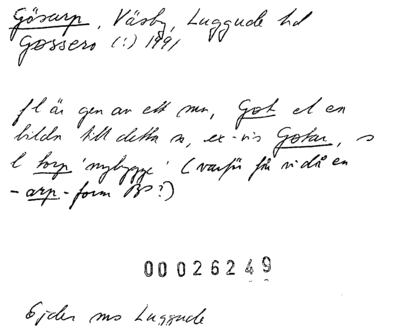 Gösarp, Väsby, Luggude hd
Gøssero (!) 1991
fl är gen av ett mn, Got el en
bildn till detta n, ex-vis Gotar, s
l torp 'nybygge' (varför får vi då en
-arp-form BS?)
00026249
Ejder ms Luggude